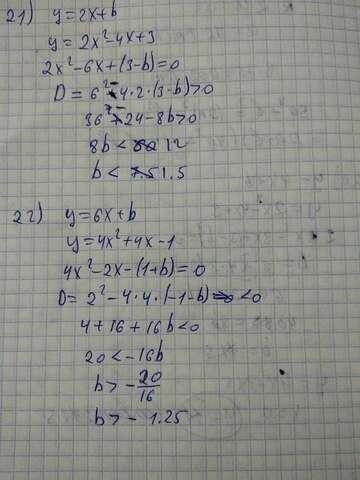 21) y=2x+b
y=2x²-4x+3
2x²-6x+(3-b)=0
D=6²-4·2·(3-b)>0
36-24-8b>0
8b<12
b<1.5
22) y=6x+b
y=4x²+4x-1
4x²-2x-(1+b)=0
D=2²-4·4·(-1-b)<0
4+16+16b<0
20<-16b
b>-20/16
b>-1.25